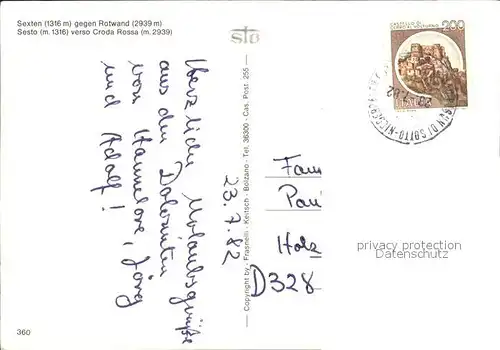 Sexten (1316 m) gegen Rotwand (2939 m)
Sesto (m. 1316) verso Croda Rossa (m. 2939)
Herzliche Urlaubsgrüße
aus den Dolomiten
von Hannelore, Jörg
und Adolf!
23.7.82
360
Copyright by - Frasnelli - Keitsch - Bolzano - Tel. 36300 - Cas. Post. 255
sto
CASTELLO DI
CERRO AL VOLTURNO
200
ITALIA
DI SOTTO
Fam
Pau
Holz
D328
privacy protection
Datenschutz